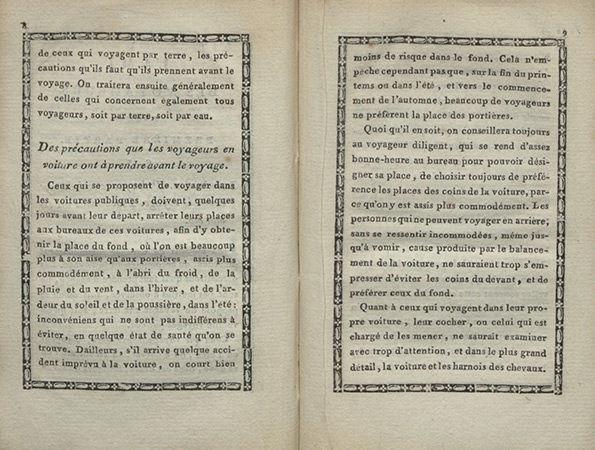 8
de ceux qui voyagent par terre, les pré-
cautions qu'ils faut qu'ils prennent avant le
voyage. On traitera ensuite généralement
de celles qui concernent également tous
voyageurs, soit par terre, soit par eau.
Des précautions que les voyageurs en
voiture ont à prendre avant le voyage.
Ceux qui se proposent de voyager dans
les voitures publiques, doivent, quelques
jours avant leur depart, arrêter leurs places
aux bureaux de ces voitures, afin d'y obte-
nir la place du fond, où l'on est beaucoup
plus à son aise qu'aux portières, assis plus
commodément, à l'abri du froid, de la
pluie et du vent, dans l'hiver, et de l'ar-
deur du soleil et de la poussière, dans l'été:
inconvéniens qui ne sont pas indifférens à
éviter, en quelque état de santé qu'on se
trouve. Dailleurs, s'il arrive quelque acci-
dent imprévu à la voiture, on court bien
9
moins de risque dans le fond. Cela n'em-
pêche cependant pas que, sur la fin du prin-
tems ou dans l'été, et vers le commence-
ment de l'automne, beaucoup de voyageurs
ne préfèrent la place des portières.
Quoi qu'il en soit, on conseillera toujours
au voyageur diligent, qui se rend d'assez
bonne-heure au bureau pour pouvoir dési-
gner sa place, de choisir toujours de préfé-
rence les places des coins de la voiture, par-
ce qu'on y est assis plus commodément. Les
personnes qui ne peuvent voyager en arrière,
sans se ressentir incommodées, même jus-
qu'à vomir, cause produite par le balance-
ment de la voiture, ne sauraient trop s'em-
presser d'éviter les coins du devant, et de
préférer ceux du fond.
Quant à ceux qui voyagent dans leur pro-
pre voiture, leur cocher, ou celui qui est
chargé de les mener, ne saurait examiner
avec trop d'attention, et dans le plus grand
détail, la voiture et les harnois des chevaux.